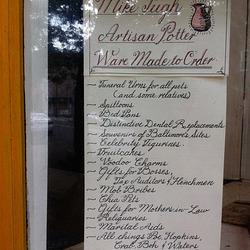 Mike Tugh
Artisan Potter
Ware Made to Order
~ Funeral Urns for all pets
(and some relatives)
~ Spittoons
~ Bed Pans
~ Distinctive Dental Replacements
~ Souvenirs of Baltimore Sites
~ Celebrity Figurines
~ Fruitcakes
~ Voodoo Charms
~ Gifts for Bosses,
The Auditors & Henchmen
~ Mob Bribes
~ Chia Pets
~ Gifts for Mothers-in-Law
~ Reliquaries
~ Marital Aids
~ All things Poe, Hopkins,
Crab, Boh & Waters